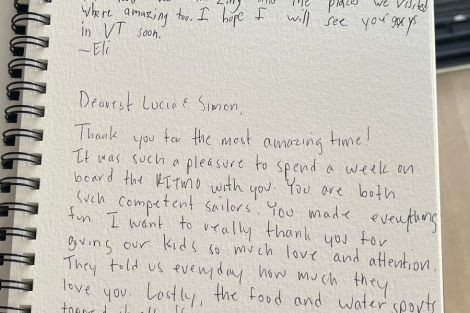 zing and the places we visited
where amazing too. I hope I will see you guys
in VT soon.
~Eli
Dearest Lucia & Simon,
Thank you for the most amazing time!
It was such a pleasure to spend a week on
board the with you. You are both
such competent sailors. You made everything
fun. I want to really thank you for
giving our kids so much love and attention.
They told us everyday how much they
love you. Lastly, the food and water sports